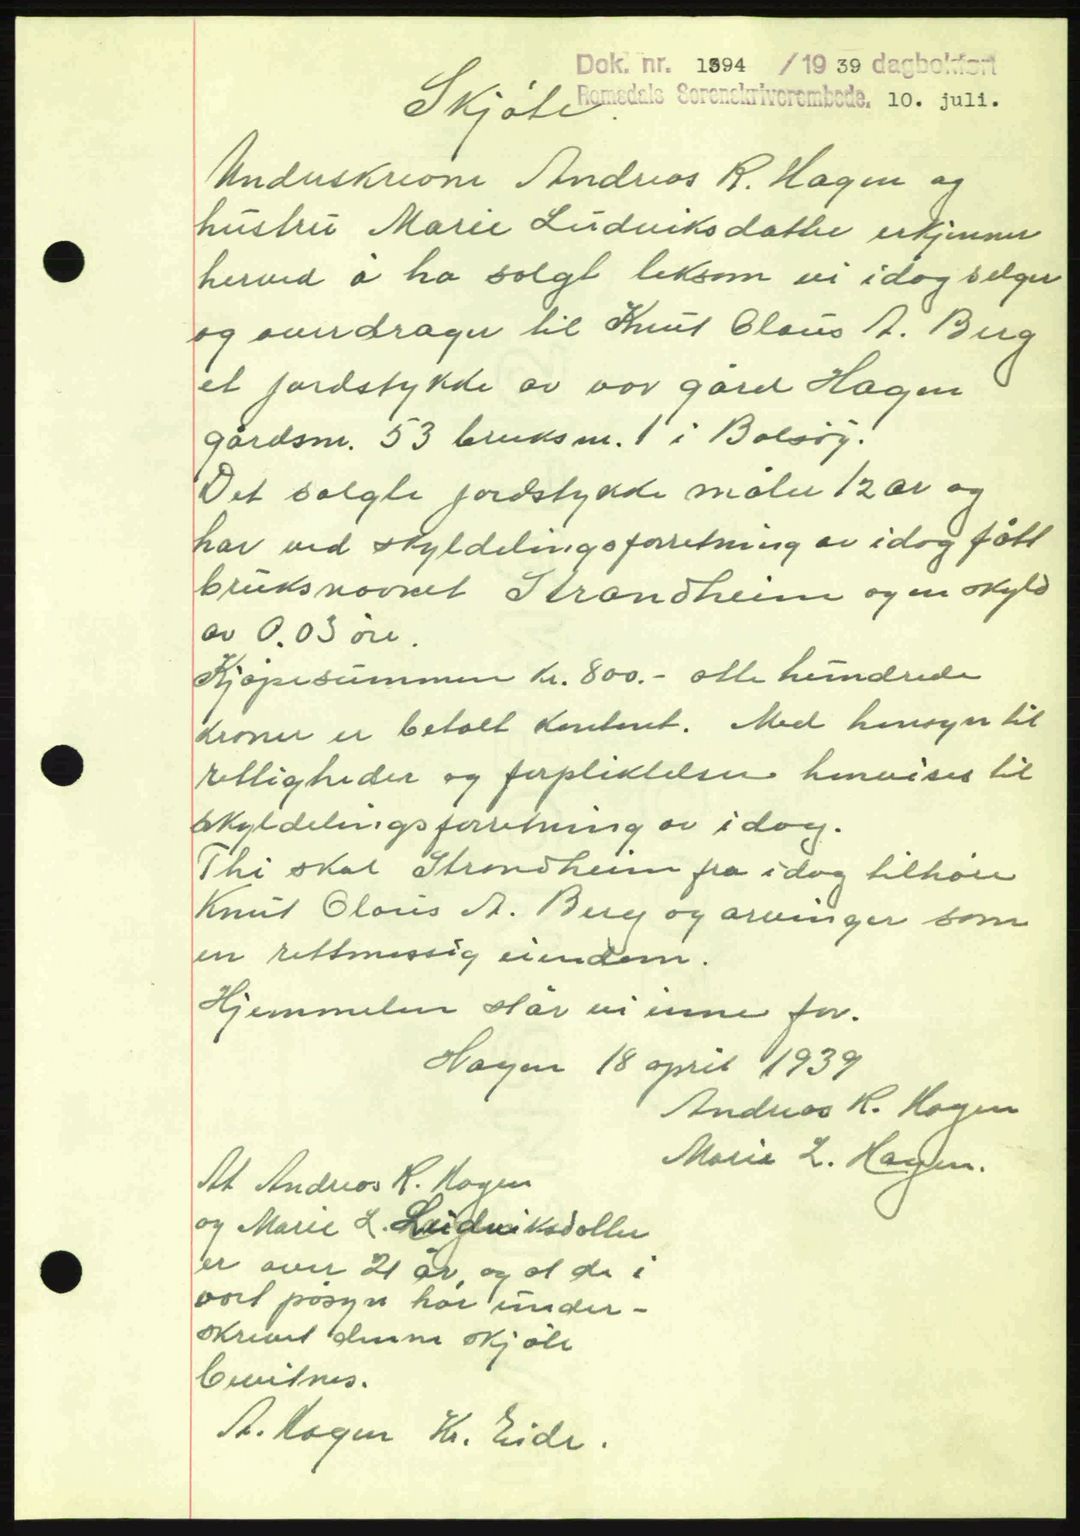 Dok. nr. 1394 / 19 39 dagbokført
Romsdals Sorenskriverembede. 10. juli.
Skjöte.
Underskrevne Andreas R. Hagen og
hustru Marie Ludviksdatter erkjenner
herved å ha solgt liksom vi idag selger
og overdrager til Knut Olaus A. Berg
et jordstykke av vor gård Hagen
gårdsnr. 53 bruksnr. 1 i Bolsöy.
Det solgte jordstykke måler 12 ar og
har ved skyldelingsforretning av idag fått
bruksnavnet Strandheim og en skyld
av 0.03 öre.
Kjøpesummen kr. 800.- otte hundrede
kroner er betalt kontant. Med hensyn til
rettigheder og forpliktelser henvises til
skyldelingsforretning av idag.
Thi skal Strandheim fra idag tilhöre
Knut Olaus A. Berg og arvinger som
en rettmessig eiendom.
Hjemmelen står vi inne for.
Hagen 18 april 1939
Andreas R. Hagen
Marie L. Hagen.
At Andreas R. Hagen
og Marie L. Ludviksdatter
er over 21 år, og at de i
vort påsyn har under-
skrevet denne skjöte
bevitnes.
A. Hagen Kr. Eide.